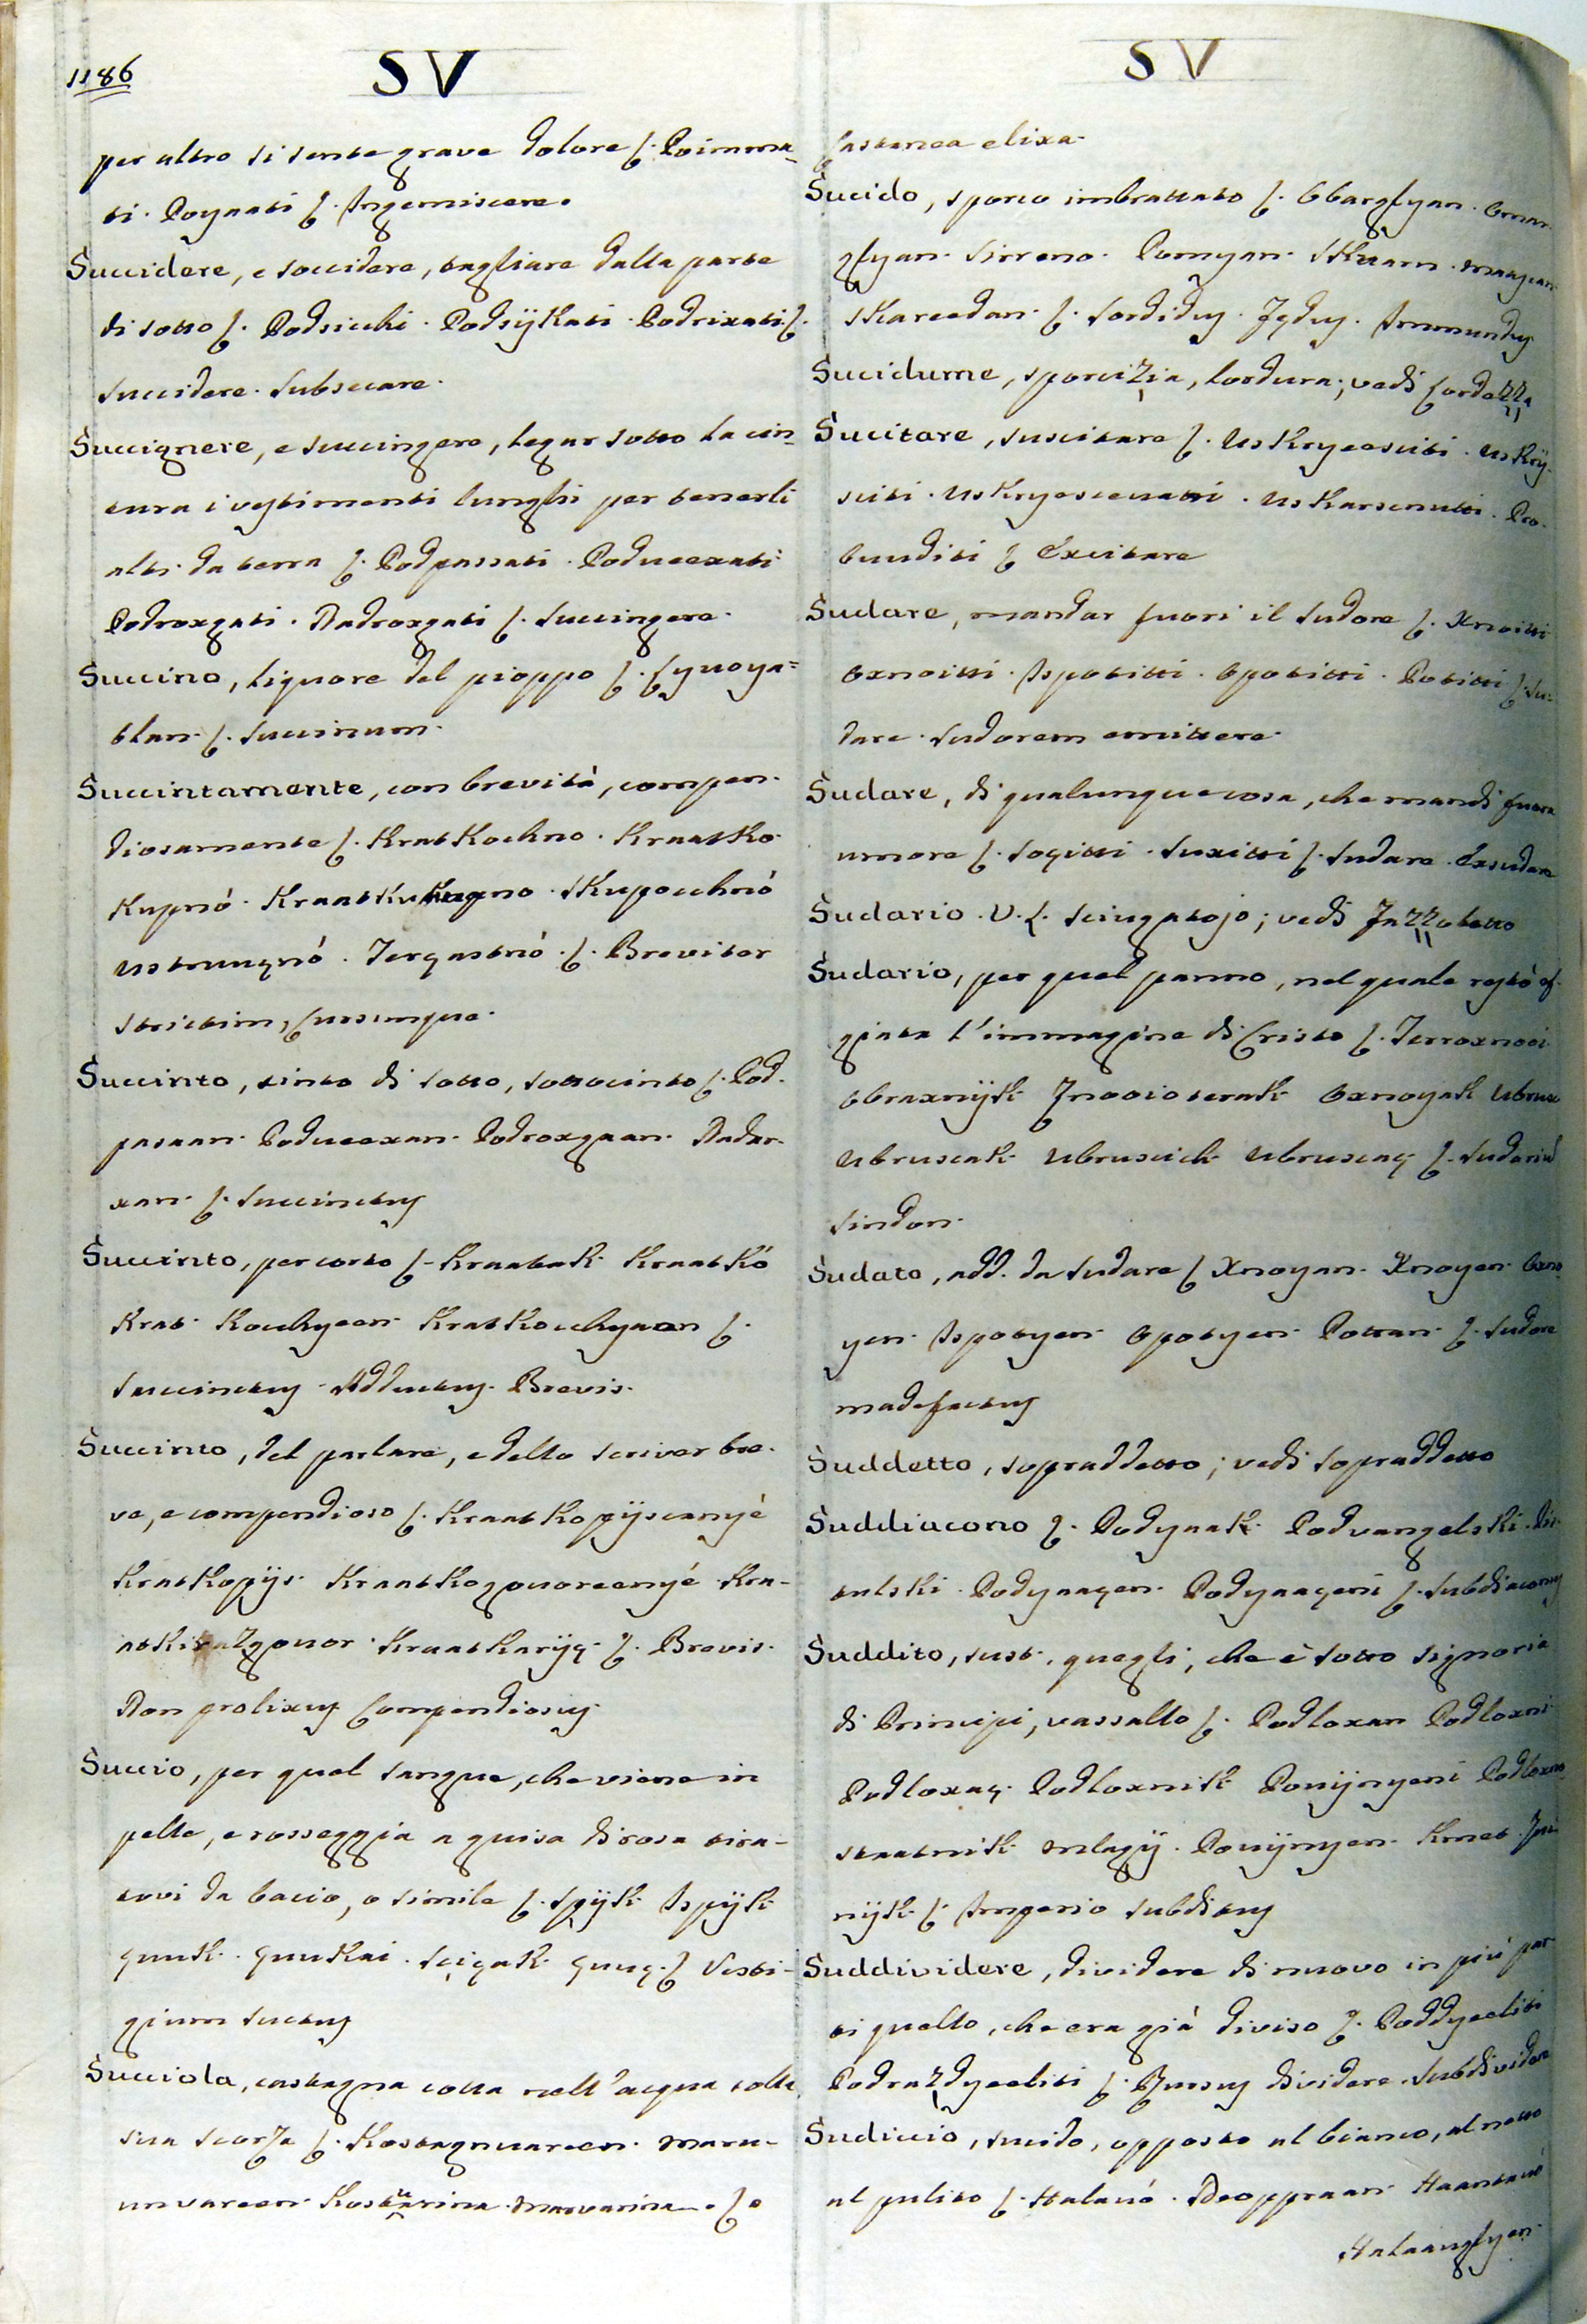 1186
SV
per altro si sente grave dolore ſ. Poimma-
ti. Poynati ſ. Ingemiscere.
Succidere, e soccidere, tagliare dalla parte
di sotto ſ. Podsicchi. Podsijkati. Podrixati ſ.
succidere. Subsecare.
Succignere, e succingere, legar sotto la cin-
tura i vestimenti lunghi per tenerli
alti da terra ſ. Podpassati. Podueexati
Podroxgati. Nadroxgati ſ. Succingere.
Succino, liquore del pioppo ſ.
ſ. Succinum.
Succintamente, con brevità, compen-
diosamente ſ. Kratkochno. Kraatko
Kupnó. Skupocchnó
ſ. Breviter
strictim, cursimque.
Succinto, cinto di sotto, sottocinto ſ. Pod-
pasaan. Poducexan. Podroxgaan. Nadro-
xan. ſ. Succinctus
Succinto, per corto ſ. Kraatak Kraatkó
Krat-Kocchyeen. Kratkocchyaan ſ.
Succinctus. Adductus. Brevis.
Succinto, del parlare, e dello scriver bre-
ve, e compendioso ſ. Kraatkopijscanyé
Kratkopijs. Kraatkogovoreenyé. Kra-
atkirazgovor. Kraatkarijç. ſ. Brevis.
Non prolixus Compendiosus
Succio, per quel sangue, che viene in
pelle, e rosseggia a guisa di rosa tira-
tovi da bacio, o simile ſ. Spijk Ispijk
ſ. Vesti-
gium suctus
Succiola, castagna cotta nell'acqua colla
sua scorza ſ. Kostagnuareen. Maru-
unvareen. Marvarina. ſ.
SV
Castanea elixa.
Sucido, sporco imbrattato ſ. Obarglyan. Omar-
glyan. Sirreno. Pomyan. Skuarn.
Skareedan. ſ. Sordidus. Immundus
Sucidume, sporcizia, lordura; vedi Lordezza
Sucitare, suscitare ſ. Uskryeesciti. Uskrij-
sciti. Uskryescevatti. Uskarsenutti. Pro-
buuditi ſ. Excitare
Sudare, mandar fuori il sudore ſ. Xnoitti
Oxnoitti. Ispotitti. Opotitti. Potitti ſ. Su-
dare. Sudorem emittere.
Sudare, di qualunque cosa, che mandi fuora
umore ſ. Soçitti. Suxitti ſ. Sudare. Exsudare
Sudario. V. L. sciugatojo; vedi Fazzoletto
Sudario, per quel panno, nel quale restò ef-
giata l'immagine di Cristo ſ.
Obraxnijk Oxnoyak Ubrus
Ubruscak Ubruscich Ubruscaç ſ. Sudariū
Sindon.
Sudato, add. da sudare ſ. Xnoyan. Xnoyen. Oxno-
yen. Ispotyen. Opotyen. Pottan. ſ. Sudore
madefactus
Suddetto, sopraddetto; vedi Sopraddetto
Suddiacono ſ. Podyaak. Podvangelski.
Podyaaçen. Podyaaçeni ſ. Subdiaconus
Suddito, sust. quegli, che è sotto signoria
di Principi, vassallo ſ. Podloxan Podloxni
Podloxaç. Podloxnik Povijnyeni Podloxno-
staatnik Mlagij. Povijnyen. Kmet.
nijk. ſ. Imperio subditus
Suddividere, dividere di nuovo in più par-
ti quello, che era già diviso ſ. Poddyeeliti
Podrazdyeeliti ſ. Rursus dividere. Subdividere
Sudiccio, sucido, opposto al bianco, al netto
al pulito ſ. Halavó. Neoppraan.
Halaanglyen.